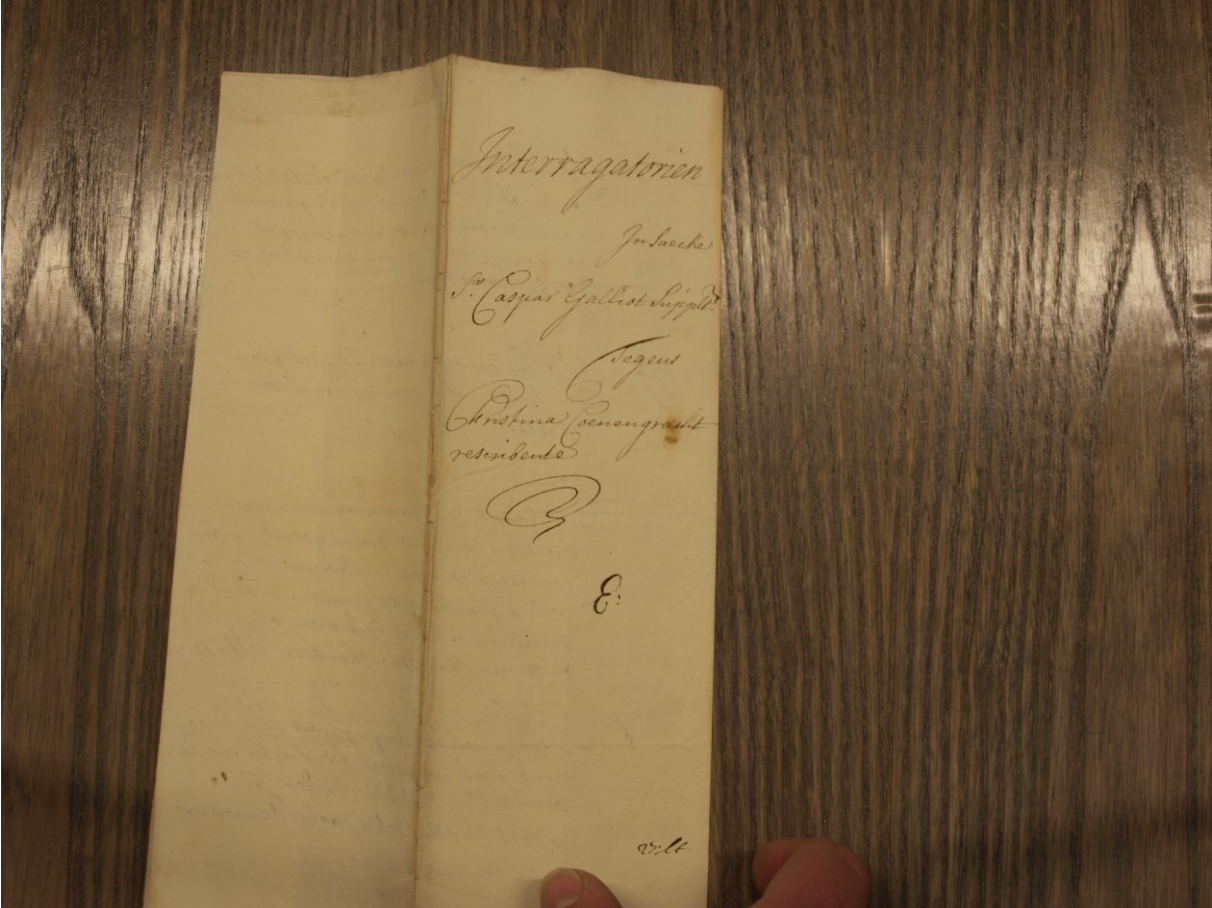 Interragatorien
In Saecke
Sr. Caspar Galliot Supplt.
Tegens
Christina Coenengracht
rescribente
E: